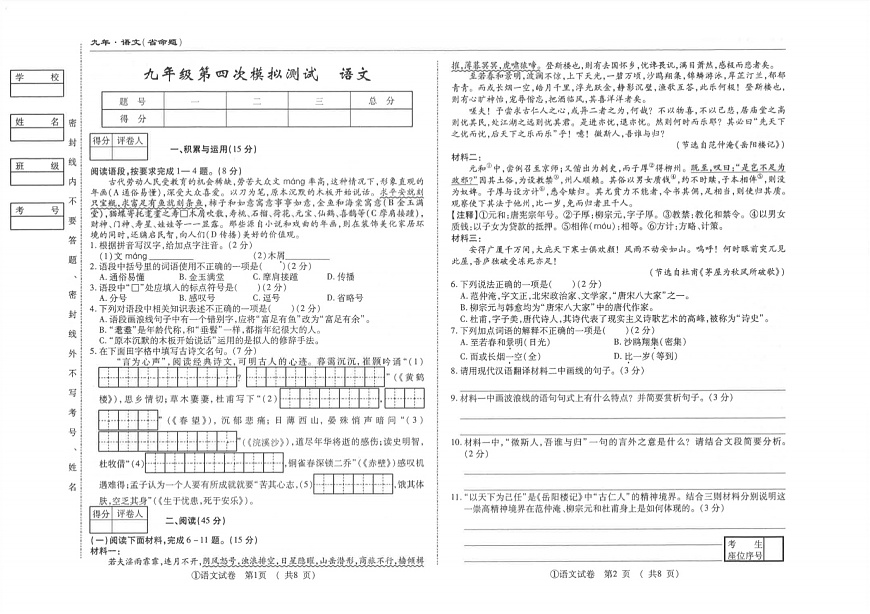 九年·语文(省命题)
学 校
姓 名
班 级
考 号
密封线内不要答题、密封线外不写考号、姓名
九年级第四次模拟测试 语文
题 号 一 二 三 总 分
得 分
得分 评卷人
一、积累与运用(15分)
阅读语段,按要求完成1—4题。(8分)
古代劳动人民受教育的机会稀缺,劳苦大众文 máng 率高,这种情况下,形象直观的
年画(A 通俗易懂),深受大众喜爱。以刀为笔,原本沉默的木板开始说话。求平安就刻
只宝瓶,求富足有鱼就刻条鱼,柿子和如意寓意事事如意,金鱼和海棠寓意(B 金玉满
堂),蝴蝶寄托耄耋之寿□木屑吹散,寿桃、石榴、荷花、元宝、仙鹤、喜鹊等(C 摩肩接踵),
财神、门神、寿星、娃娃等一一显露。那些源自小说和戏曲的年画,则在装饰美化家居环
境的同时,还犒启民智,向人们(D 传播)美好的价值观。
1. 根据拼音写汉字,给加点字注音。(2分)
(1)文 máng (2)木屑
2. 语段中括号里的词语使用不正确的一项是( )(2分)
A. 通俗易懂 B. 金玉满堂 C. 摩肩接踵 D. 传播
3. 语段中“□”处应填入的标点符号是( )(2分)
A. 分号 B. 感叹号 C. 逗号 D. 省略号
4. 下列对语段中相关知识表述不正确的一项是( )(2分)
A. 语段画浪线句子中有一个错别字,应将“富足有鱼”改为“富足有余”。
B. “耄耋”是年龄代称,和“垂髫”一样,都指年纪很大的人。
C. “原本沉默的木板开始说话”运用的是拟人的修辞手法。
5. 在下面田字格中填写古诗文名句。(7分)
“言为心声”,阅读经典诗文,可明古人的心迹。暮霭沉沉,崔颢吟诵“(1)
?
”(《黄鹤
楼》),思乡情切;草木萋萋,杜甫写下“(2)
,
”(《春望》),沉郁悲痛;日薄西山,晏殊悄声暗问“(3)
”(《浣溪沙》),道尽年华将逝的感伤;读史明智,
杜牧借“(4)
,铜雀春深锁二乔”(《赤壁》)感叹机
遇难得;孟子认为一个人要有所成就就要“苦其心志,(5)
,饿其体
肤,空乏其身”(《生于忧患,死于安乐》)。
得分 评卷人
二、阅读(45分)
(一)阅读下面材料,完成6—11题。(15分)
材料一:
若夫淫雨霏霏,连月不开,阴风怒号,浊浪排空,日星隐曜,山岳潜形,商旅不行,樯倾楫
①语文试卷 第1页 (共8页)
摧,薄暮冥冥,虎啸猿啼。登斯楼也,则有去国怀乡,忧谗畏讥,满目萧然,感极而悲者矣。
至若春和景明,波澜不惊,上下天光,一碧万顷,沙鸥翔集,锦鳞游泳,岸芷汀兰,郁郁
青青。而或长烟一空,皓月千里,浮光跃金,静影沉璧,渔歌互答,此乐何极!登斯楼也,
则有心旷神怡,宠辱偕忘,把酒临风,其喜洋洋者矣。
嗟夫!予尝求古仁人之心,或异二者之为,何哉?不以物喜,不以己悲,居庙堂之高
则忧其民,处江湖之远则忧其君。是进亦忧,退亦忧。然则何时而乐耶?其必曰“先天下
之忧而忧,后天下之乐而乐”乎!噫!微斯人,吾谁与归?
(节选自范仲淹《岳阳楼记》)
材料二:
元和①中,尝例召至京师;又偕出为刺史,而子厚②得柳州。既至,叹曰:“是岂不足为
政邪?”因其土俗,为设教禁③,州人顺赖。其俗以男女质钱④,约不时赎,子本相侔⑤,则没
为奴婢。子厚与设方计⑥,悉令赎归。其尤贫力不能者,令书其佣,足相当,则使归其质。
观察使下其法于他州,比一岁,免而归者且千人。
【注释】①元和:唐宪宗年号。②子厚:柳宗元,字子厚。③教禁:教化和禁令。④以男女
质钱:以子女为贷款的抵押。⑤相侔(móu):相等。⑥方计:方略,计策。
材料三:
安得广厦千万间,大庇天下寒士俱欢颜!风雨不动安如山。呜呼!何时眼前突兀见
此屋,吾庐独破受冻死亦足!
(节选自杜甫《茅屋为秋风所破歌》)
6. 下列说法正确的一项是( )(2分)
A. 范仲淹,字文正,北宋政治家、文学家,“唐宋八大家”之一。
B. 柳宗元与韩愈均为“唐宋八大家”中的唐代作家。
C. 杜甫,字子美,唐代诗人,其诗代表了现实主义诗歌艺术的高峰,被称为“诗史”。
7. 下列加点词语的解释不正确的一项是( )(2分)
A. 至若春和景明(日光) B. 沙鸥翔集(密集)
C. 而或长烟一空(全) D. 比一岁(等到)
8. 请用现代汉语翻译材料二中画线的句子。(3分)
9. 材料一中画波浪线的语句句式上有什么特点?并简要赏析句子。(3分)
10. 材料一中,“微斯人,吾谁与归”一句的言外之意是什么?请结合文段简要分析。
(2分)
11. “以天下为己任”是《岳阳楼记》中“古仁人”的精神境界。结合三则材料分别说明这
一崇高精神境界在范仲淹、柳宗元和杜甫身上是如何体现的。(3分)
考 生
座位序号
①语文试卷 第2页 (共8页)